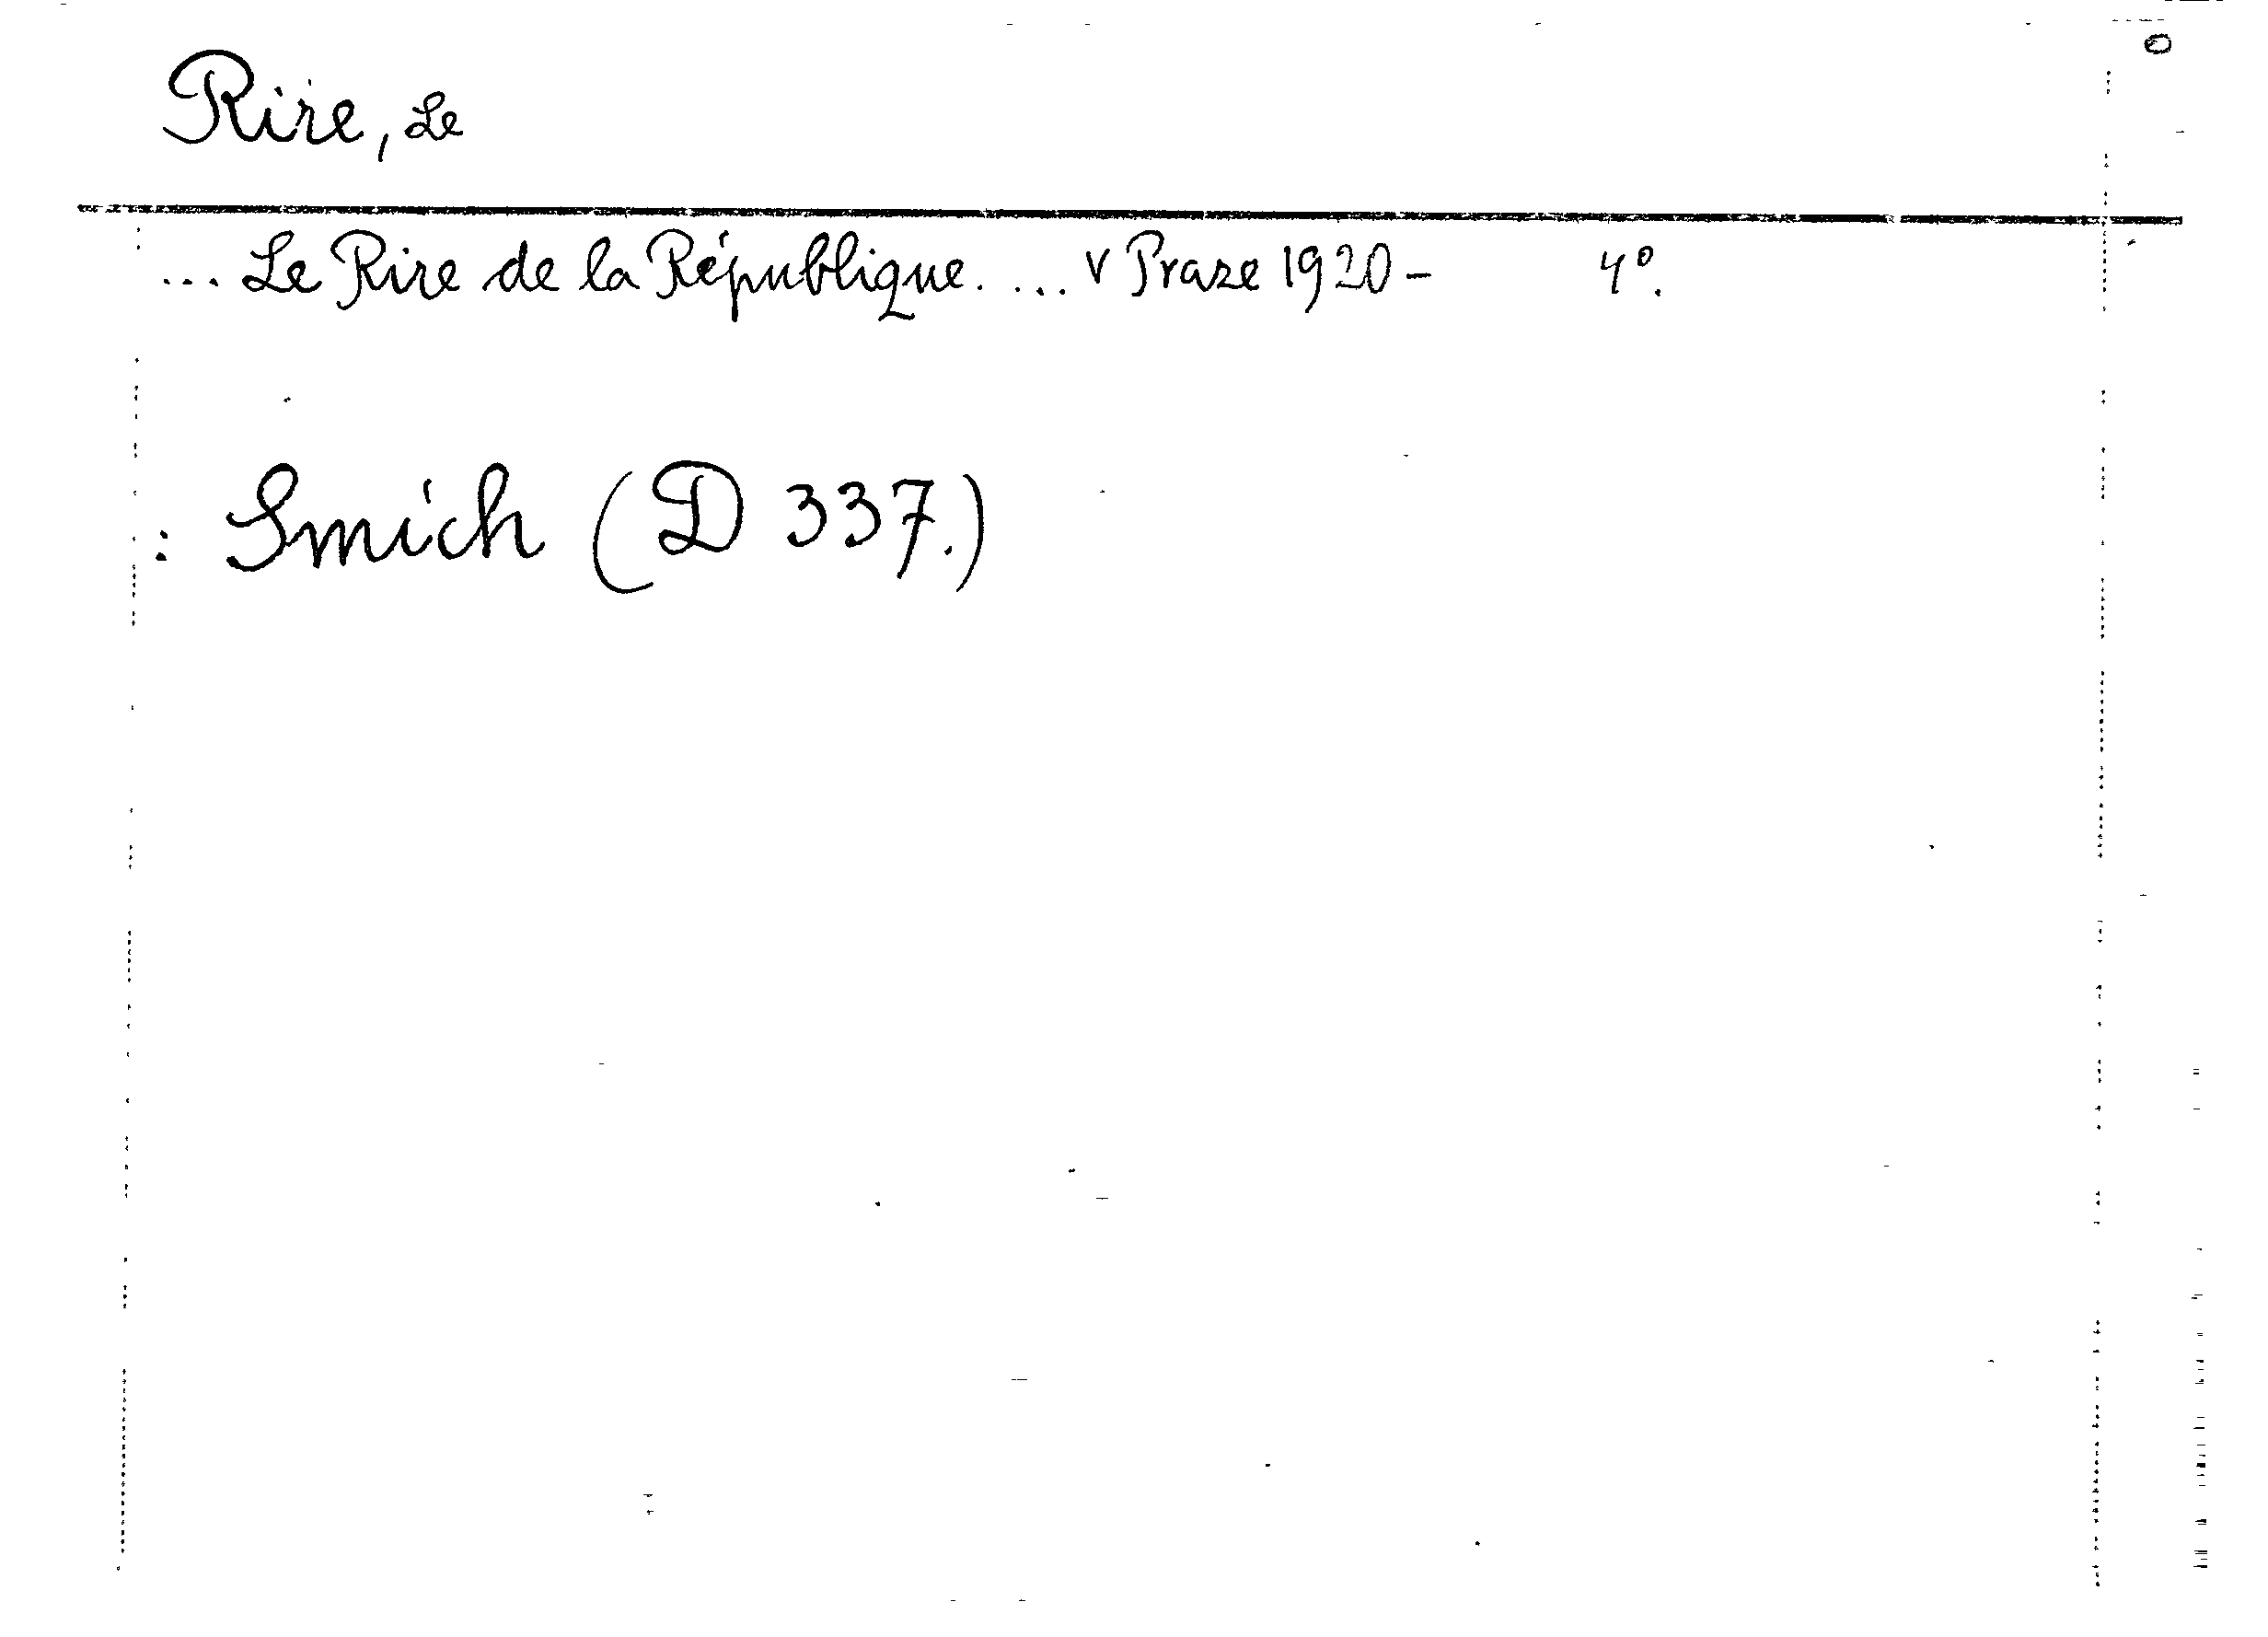 Rire, Le
... Le Rire de la République. ... v Praze 1920- 4°.
: Smích (D 337.)